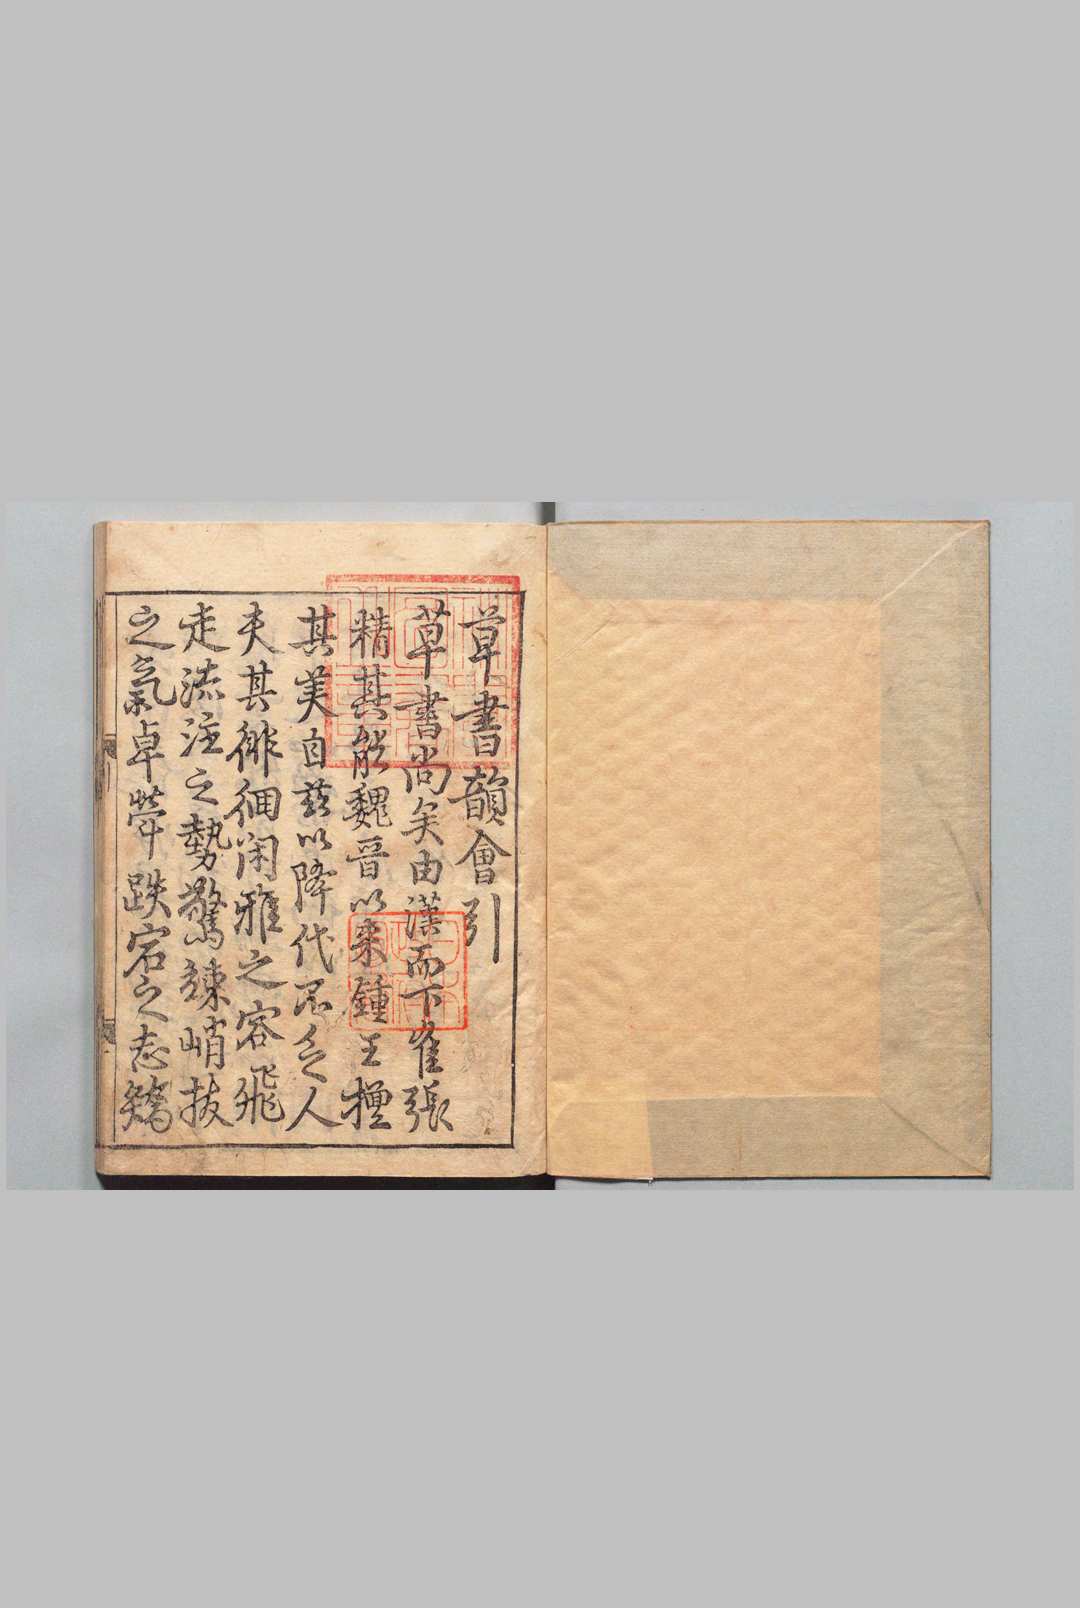 草書韻會引
草書尚矣由漢而下崔張
精其能魏晉以來鍾王擅
其美自茲以降代不乏人
夫其徘徊閑雅之容飛
走流注之勢驚竦峭拔
之氣卓犖跌宕之志矯